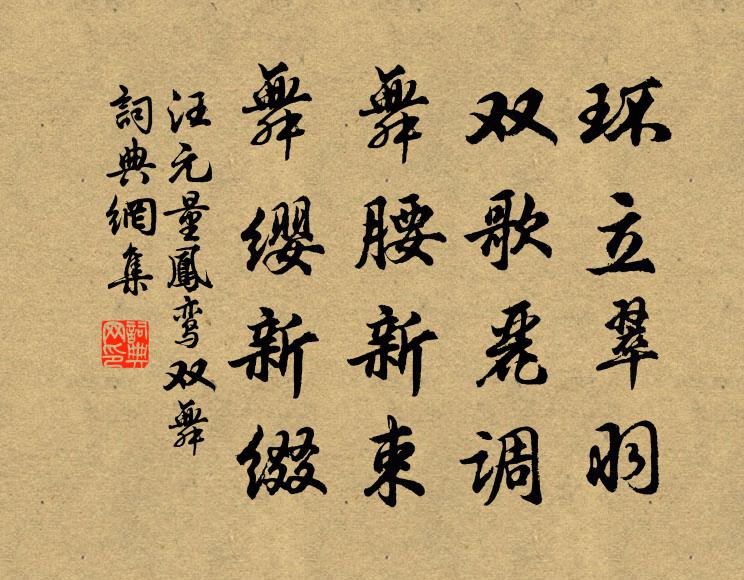 环立翠羽
双歌丽调
舞腰新束
舞缨新缀
汪元量鳳鸾双舞
詞典網集
詞典
网印